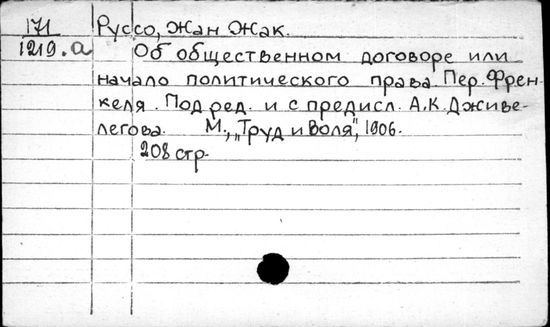 171 Руссо, Жан Жак.
1219.а Об общественном договоре или
начало политического права. Пер. Френ-
келя. Под ред. и с предисл. А.К. Дживе-
легова. М., „Труд и воля", 1906.
208 стр.